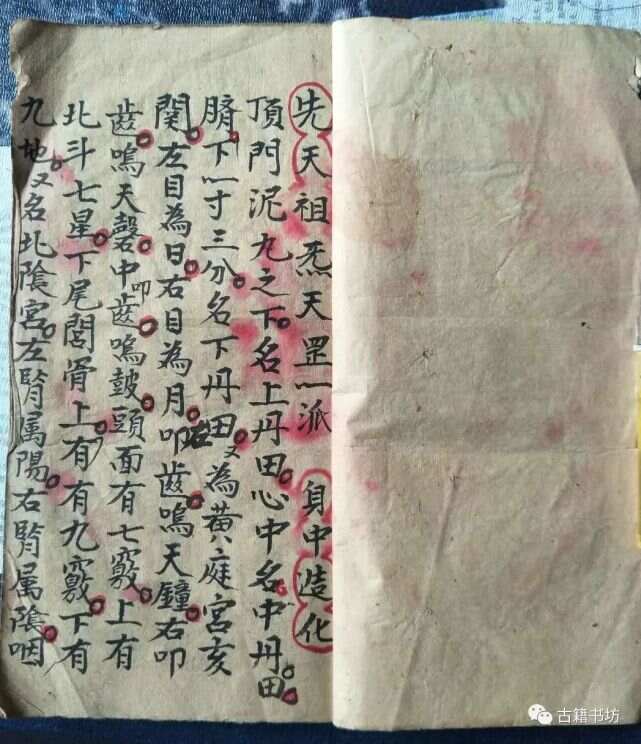 先天祖炁天罡一派 身中造化
頂門泥九之下名上丹田心中名中丹田
臍下一寸三分名下丹田又為黃庭宮亥
関左目為日右目為月叩齒嗚天鐘右叩
齒嗚天磬中叩齒嗚鼓頭面有七竅上有
北斗七星下尾閭骨上有有九竅下有
九地又名北隂宮左腎属陽右腎属隂咽
古籍书坊